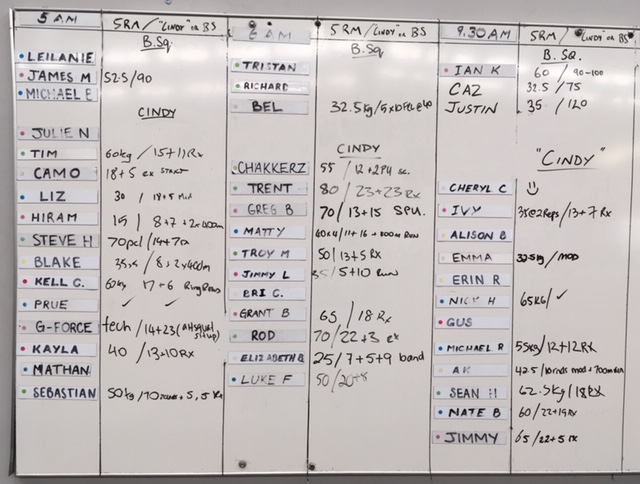 5 AM 5RM / "CINDY" or BS
B.Sq.
LEILANIE
JAMES M 52.5/90
MICHAEL B
CINDY
JULIE N
TIM 60kg / 15+11 Rx
CAMO 18+5
LIZ 30 / 18+5
HIRAM 15 / 8+7 +
STEVE H
BLAKE
KELL C. 60kg 17+6 Ring Rows
PRUE ✓ ✓
G-FORCE tech / 14+23
KAYLA 40 / 13+10 Rx
MATHAN
SEBASTIAN 50kg / + 5,5 Rx
AM 5RM / CINDY or BS
B.Sq
TRISTAN
RICHARD
BEL 32.5kg /
CINDY
CHAKKERZ 55 / 12+2 PU sc.
TRENT 80 / 23+23 Rx
GREG B 70 / 13+15 SPU.
MATTY 60x4 / 11+16 + 800m Run
TROY M 50 / 13+5 Rx
JIMMY L / 5+10 Run
BRI C.
GRANT B 65 / 18 Rx
ROD 70 / 22+3
ELIZABETH B 25 / 7+5+9 band
LUKE F 50 /
9.30AM 5RM / "CINDY" or BS
B. SQ.
IAN K 60 / 90-100
CAZ 32.5 / 75
JUSTIN 35 / 120
"CINDY"
CHERYL C
IVY 35@2Reps / 13+7 Rx
ALISON B
EMMA 32.5kg / MOD
ERIN R
NICK H 65KG / ✓
GUS
MICHAEL R 55kg / 12+12 Rx
AK 42.5 / 10rnds mod + 700m
SEAN H 62.5kg / 18 Rx
NATE B 60 / 22+19 Rx
JIMMY 65 / 22+5 Rx